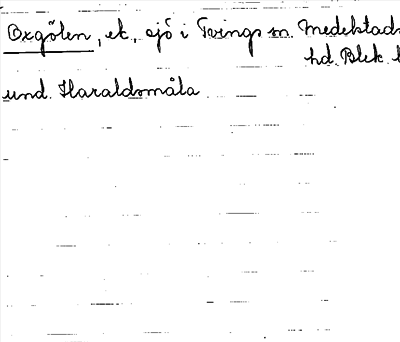 Oxgölen, ek., sjö i Tvings sn. Medelstads
hd. Blek. l
und. Haraldsmåla